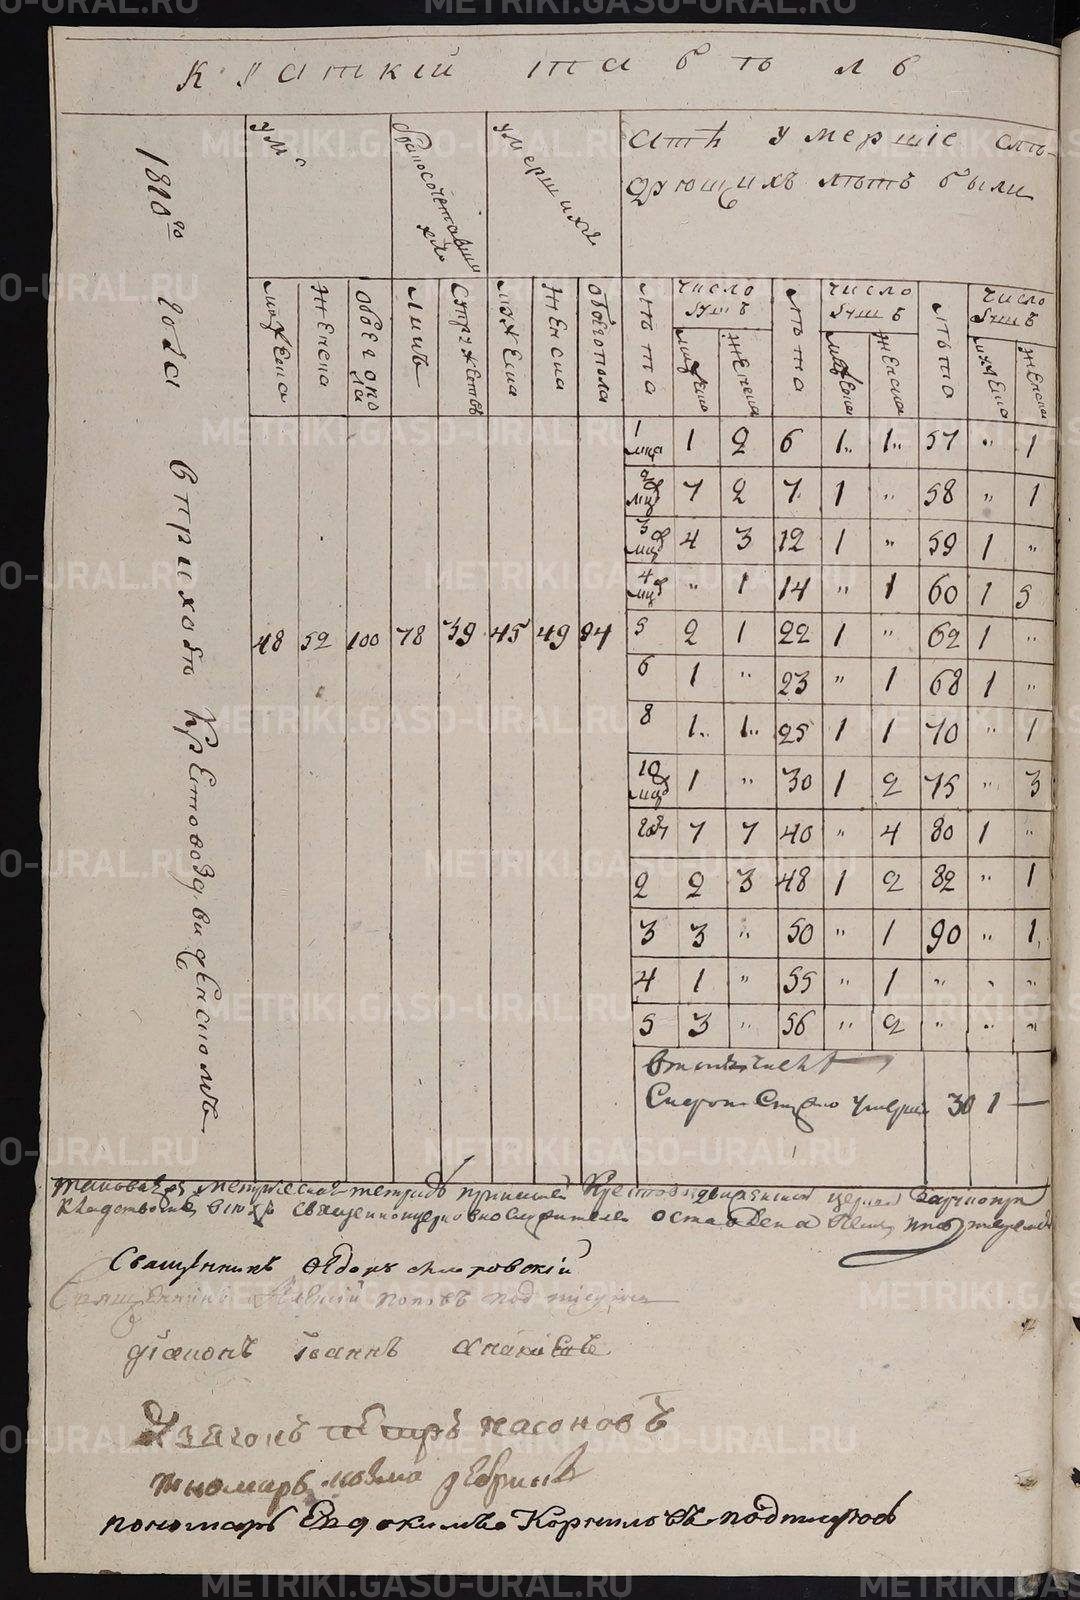 Краткий табель
1810го года в приходе Крестовоздвиженскомъ
умершихъ
А тѣ умершіе слѣ-
дующихъ лѣтъ были
мужеска женска обоего пола лицъ супружествъ мужеска женска обоего пола лѣта число душъ лѣта число душъ лѣта число душъ
мужеска женска мужеска женска мужеска женска
48 52 100 78 39 45 49 94
1 мца 1 2 6 1 1 57 " 1
2 мцъ 7 2 7 1 " 58 " 1
3 мцъ 4 3 12 1 " 59 1 "
4 мцъ " 1 14 " 1 60 1 5
5 2 1 22 1 " 62 1 "
6 1 " 23 " 1 68 1 "
8 1 1 25 1 1 70 " 1
10 мцъ 1 " 30 1 2 75 " 3
годъ 7 7 40 " 4 80 1 "
2 2 3 48 1 2 82 " 1
3 3 " 50 " 1 90 " 1
4 1 " 55 " 1 " " "
5 3 " 56 " 2 " " "
в томъ числѣ
30 1 —
таковая метрическая тетрадь Крестовоздвиженской церкви
священноцерковнослужителей оставлена
Священникъ Ѳедоръ
Священникъ Поповъ подписуюсь
діаконъ Іоаннъ
Діяконъ Петръ Насоновъ
пономарь Козма
пономарь Евдокимъ Корниловъ подписуюсь
METRIKI.GASO-URAL.RU